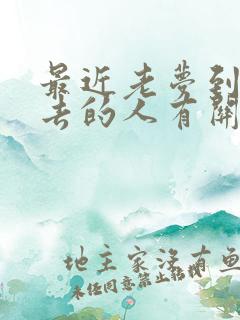 最近老梦到
去的人有关
地主家没有鱼
未经同意禁止转载